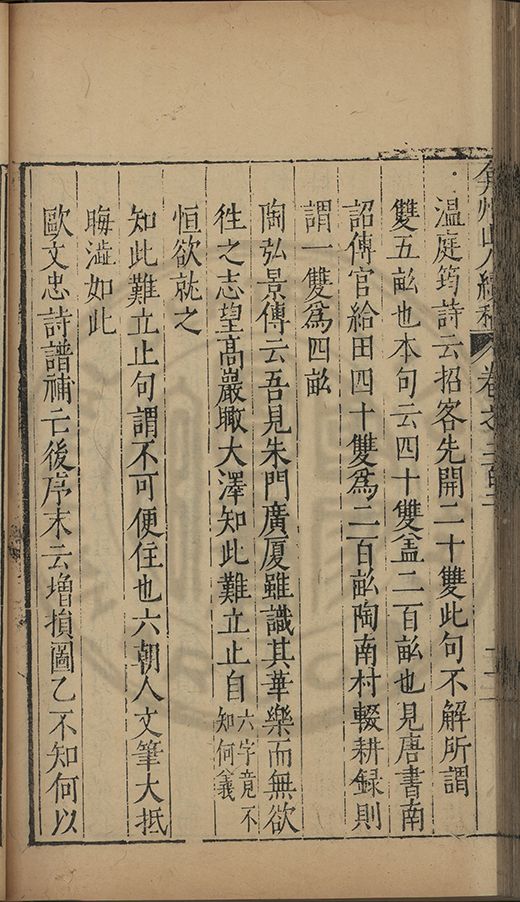 弇州山人續稿 卷之
溫庭筠詩云招客先開二十雙此句不解所謂
雙五畝也本句云四十雙盖二百畝也見唐書南
詔傳官給田四十雙為二百畝陶南村輟耕録則
謂一雙為四畝
陶弘景傳云吾見朱門廣厦雖識其華樂而無欲
徃之志望髙巖瞰大澤知此難立止自六字竟不知何義
恒欲就之
知此難立止句謂不可便住也六朝人文筆大抵
晦澁如此
歐文忠詩譜補亡後序末云增損圖乙不知何以